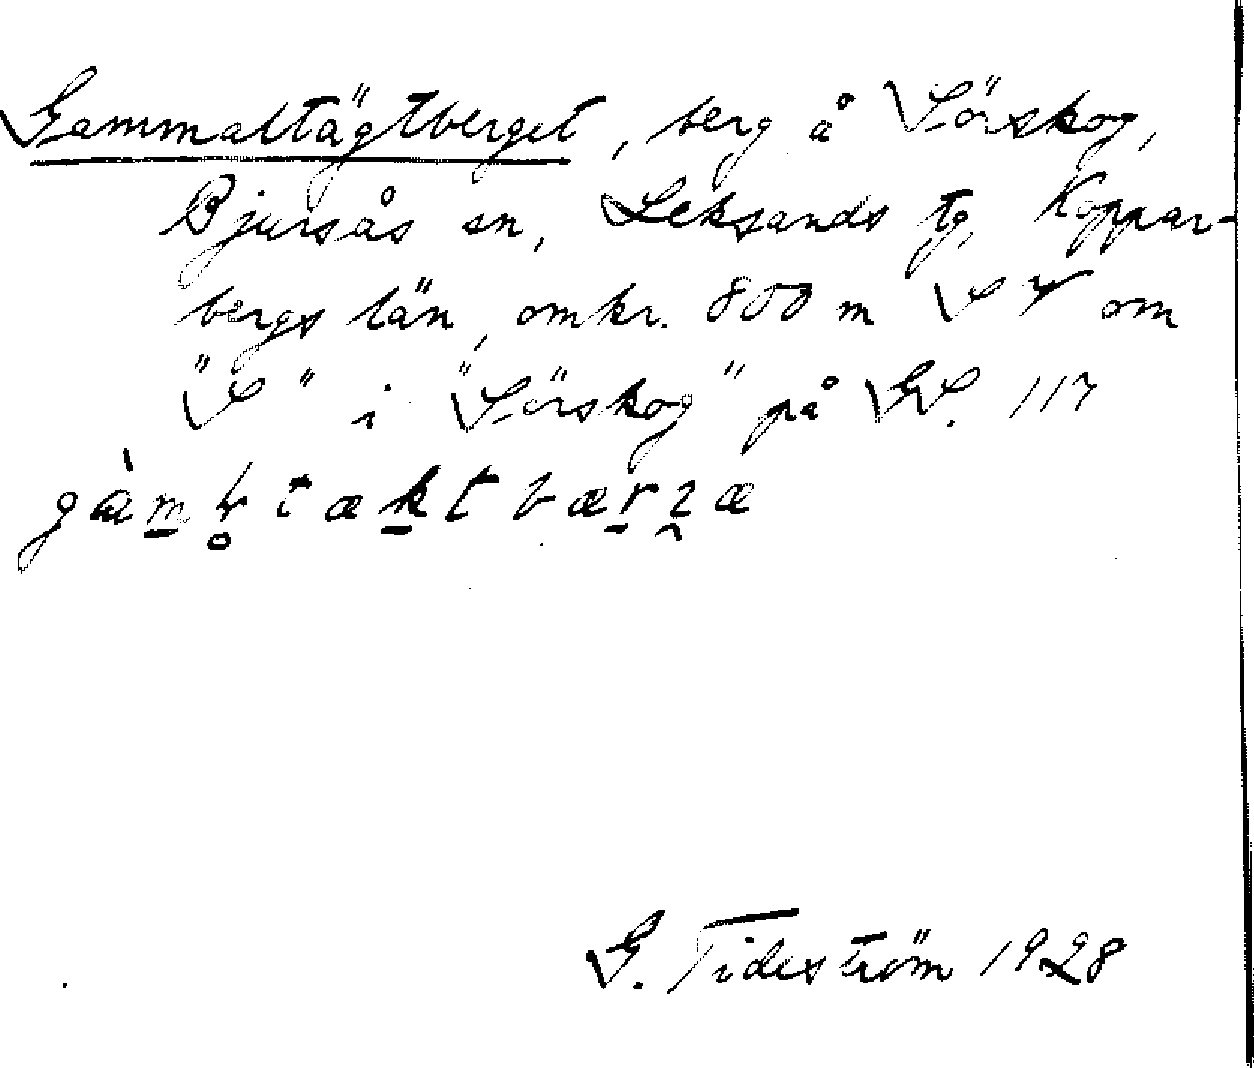 Gammaltägtberget, berg å Sörskog,
Bjursås sn, Leksands tg, Koppar-
bergs län, omkr. 800 m SV om
"S" i "Sörskog" på GS. 117
G. Tideström 1928